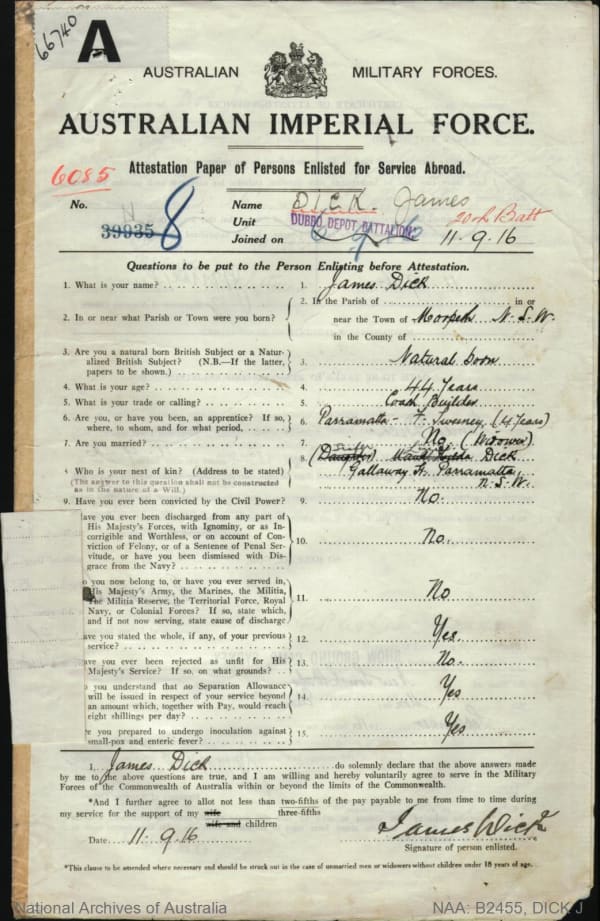 66740
A
AUSTRALIAN MILITARY FORCES.
AUSTRALIAN IMPERIAL FORCE.
Attestation Paper of Persons Enlisted for Service Abroad.
6085
No. 39935 8
N
Name DICK. James
Unit DUBBO DEPOT BATTALION 20th Batt
Joined on 11.9.16
Questions to be put to the Person Enlisting before Attestation.
1. What is your name? 1. James Dick
2. In or near what Parish or Town were you born? 2. In the Parish of in or
near the Town of Morpeth N.S.W.
in the County of
3. Are you a natural born British Subject or a Natur-
alized British Subject? (N.B.—If the latter,
papers to be shown.) 3. Natural born
4. What is your age? 4. 44 Years
5. What is your trade or calling? 5. Coach Builder
6. Are you, or have you been, an apprentice? If so,
where, to whom, and for what period, 6. Parramatta - F. Sweeney (4 Years)
7. Are you married? 7. No. (Widower)
8. Who is your next of kin? (Address to be stated) 8. (Daughter) Dick
(The answer to this question shall not be constructed
as in the nature of a Will.)
Gallaway St. Parramatta,
N.S.W.
9. Have you ever been convicted by the Civil Power? 9. No.
ave you ever been discharged from any part of
His Majesty's Forces, with Ignominy, or as In-
corrigible and Worthless, or on account of Con-
viction of Felony, or of a Sentence of Penal Ser-
vitude, or have you been dismissed with Dis-
grace from the Navy? 10. No.
o you now belong to, or have you ever served in,
His Majesty's Army, the Marines, the Militia,
the Militia Reserve, the Territorial Force, Royal
Navy, or Colonial Forces? If so, state which,
and if not now serving, state cause of discharge 11. No
ave you stated the whole, if any, of your previous
service? 12. Yes
ave you ever been rejected as unfit for His
Majesty's Service? If so, on what grounds? 13. No.
o you understand that no Separation Allowance
will be issued in respect of your service beyond
an amount which, together with Pay, would reach
eight shillings per day? 14. Yes
re you prepared to undergo inoculation against
small-pox and enteric fever? 15. Yes
I, James Dick do solemnly declare that the above answers made
by me to the above questions are true, and I am willing and hereby voluntarily agree to serve in the Military
Forces of the Commonwealth of Australia within or beyond the limits of the Commonwealth.
*And I further agree to allot not less than two-fifths of the pay payable to me from time to time during
three-fifths
my service for the support of my wife
wife and children
Date 11.9.16 James Dick
Signature of person enlisted.
*This clause to be amended where necessary and should be struck out in the case of unmarried men or widowers without children under 18 years of age.
National Archives of Australia NAA: B2455, DICK J